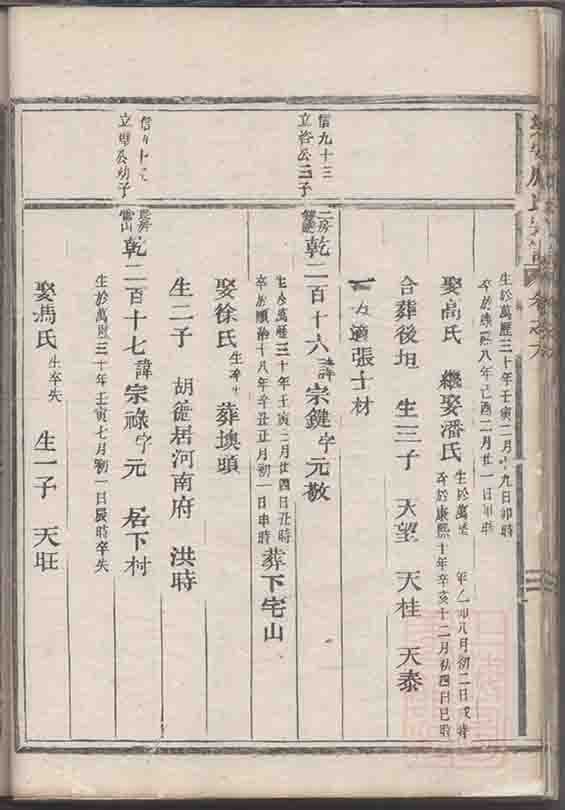 生於萬曆三十年壬寅二月十九日卯時
卒於康熙八年己酉二月廿一日卯時
娶高氏 繼娶潘氏
生於萬 年乙卯八月初二日戌時
卒於康熙十年辛亥十二月 四日巳時
合葬後垣 生三子 天望 天桂 天泰
一 適張士材
信九十三
立 公三子
二房
乾二百十六諱崇鍵字元敬
生於萬曆三十年壬寅 月廿四日丑時
卒於順治十八年辛丑正月初一日申時
葬下宅山
娶徐氏 生卒 葬墺頭
生二子 胡 居河南府 洪時
立 公幼子
乾二百十七諱宗祿字元 居下村
生於萬曆三十年壬寅七月初一日辰時卒失
娶馮氏 生卒失 生一子 天旺